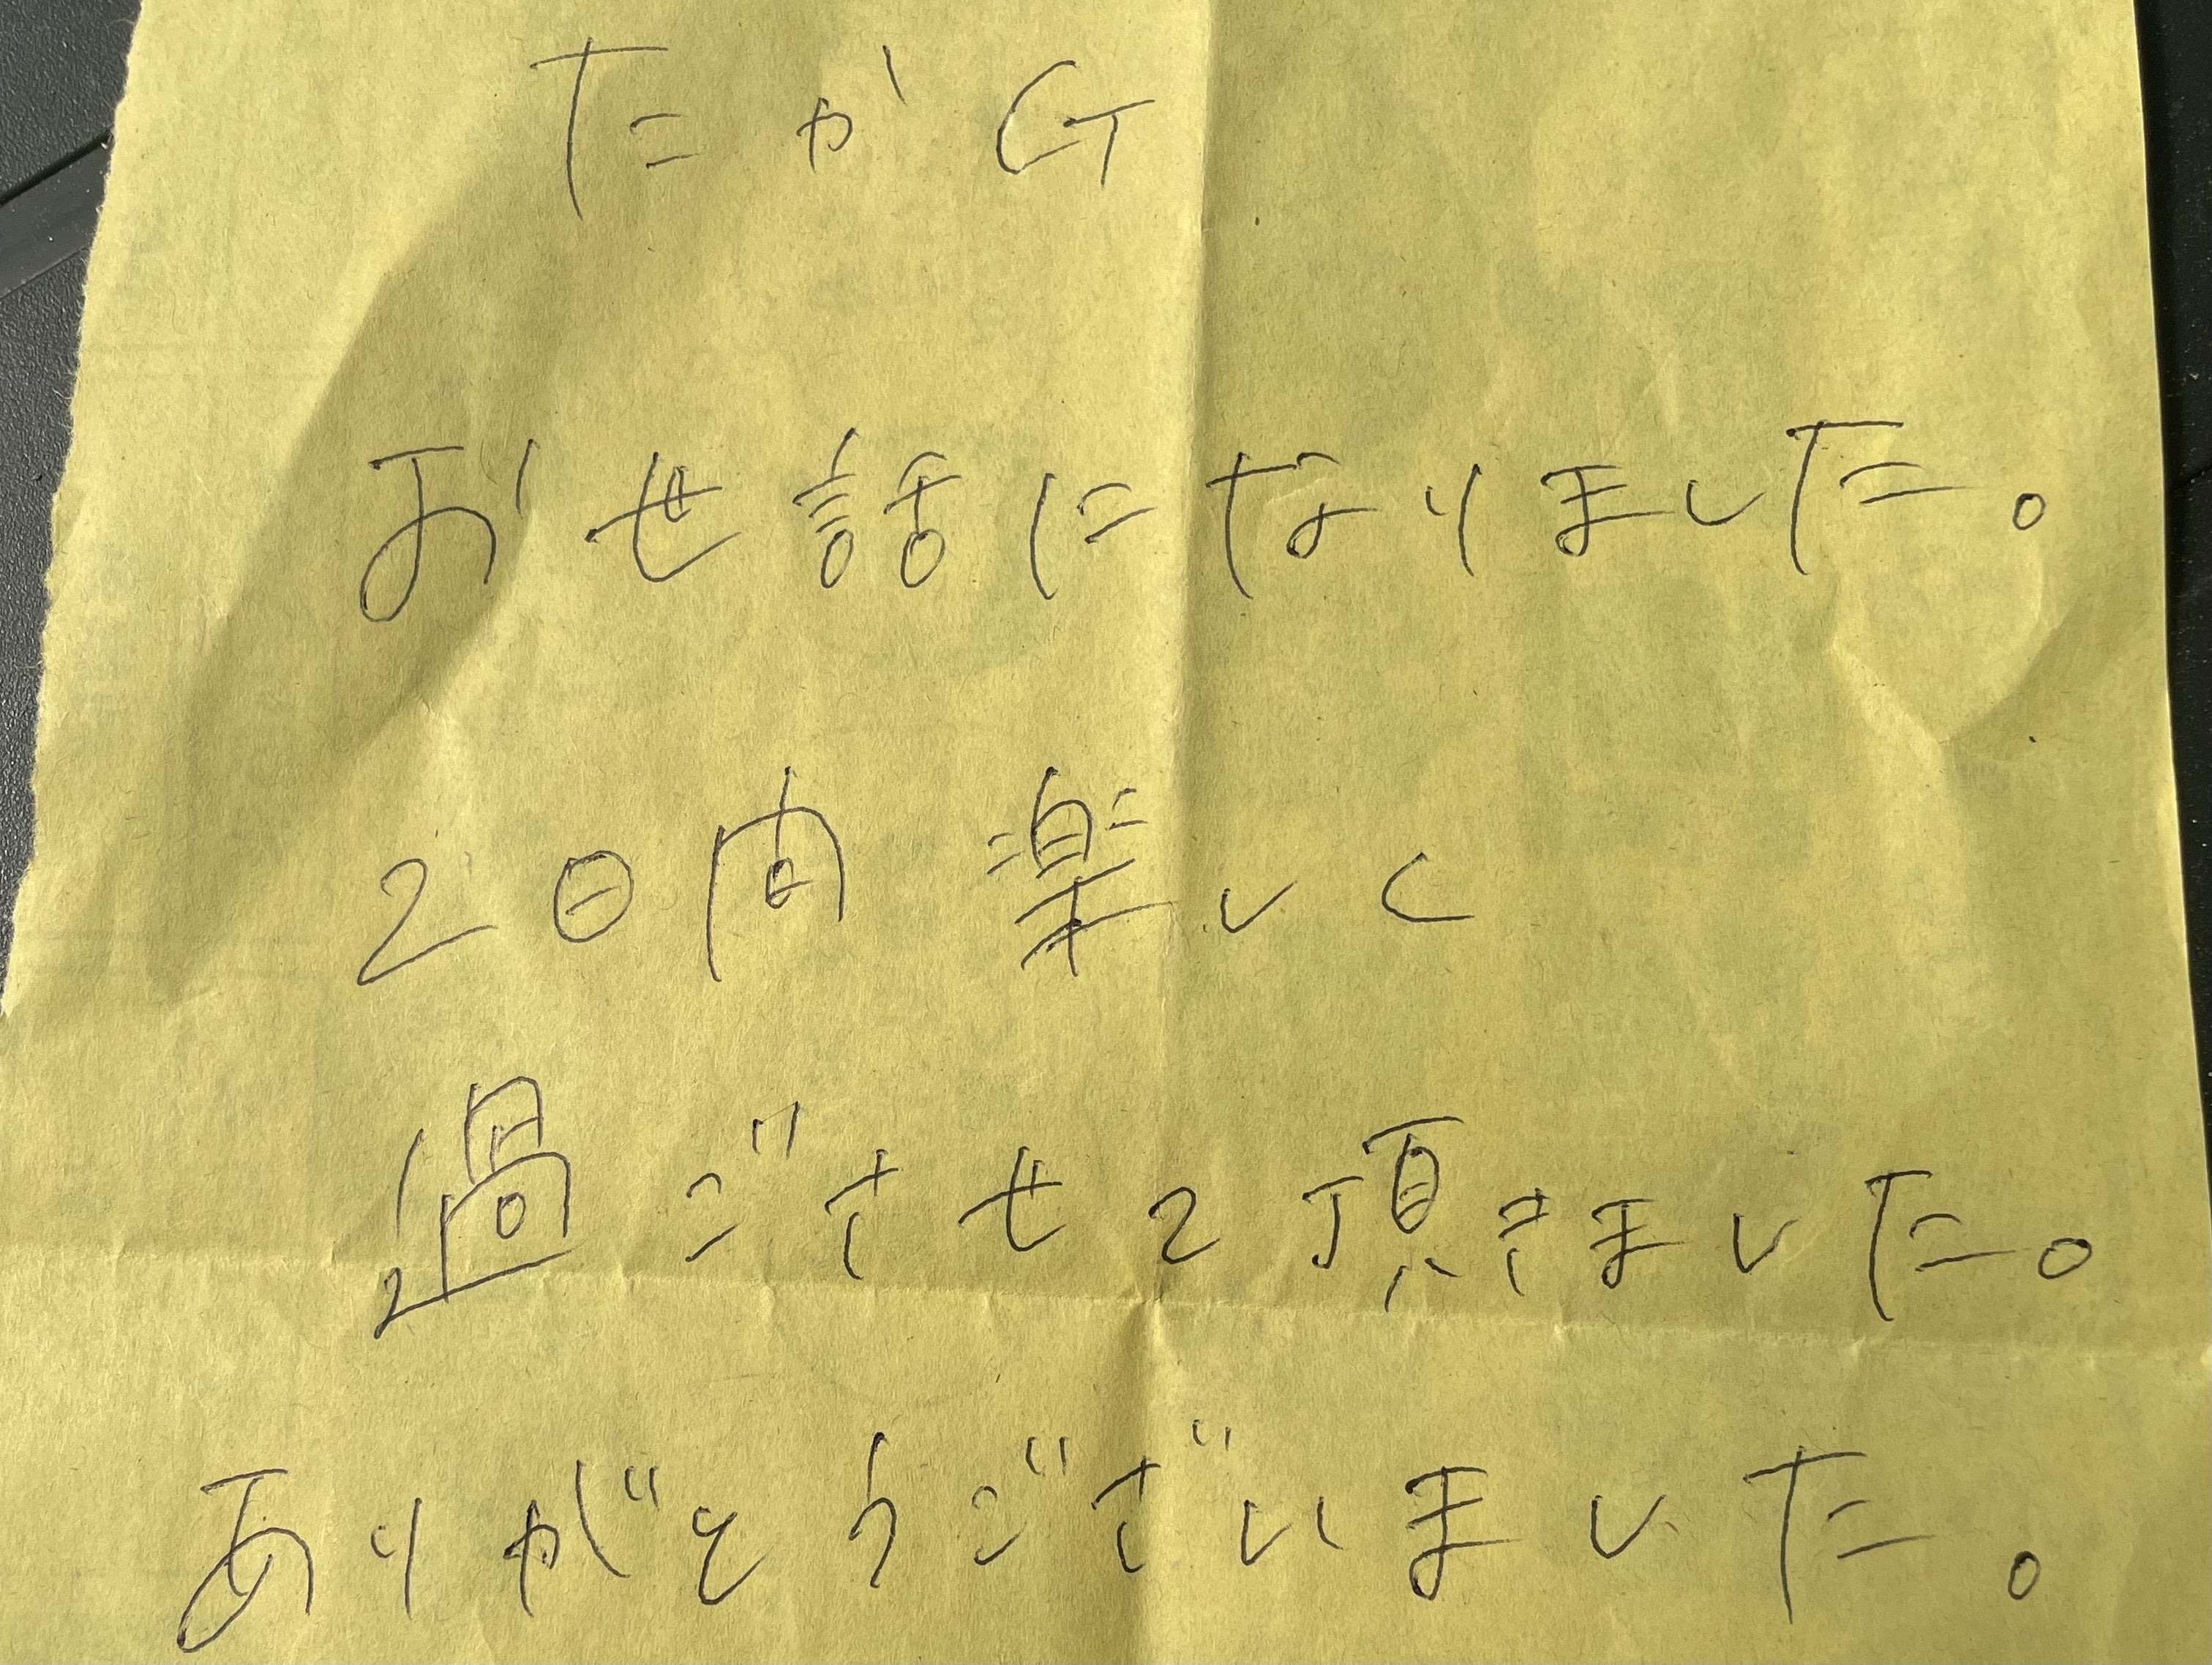 たかG
お世話になりました。
2日間楽しく
過ごさせて頂きました。
ありがとうございました。